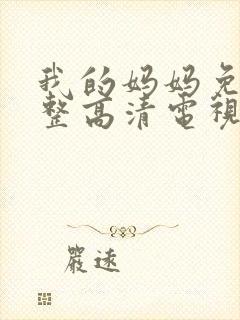 我的妈妈免
整高清電視
嚴速